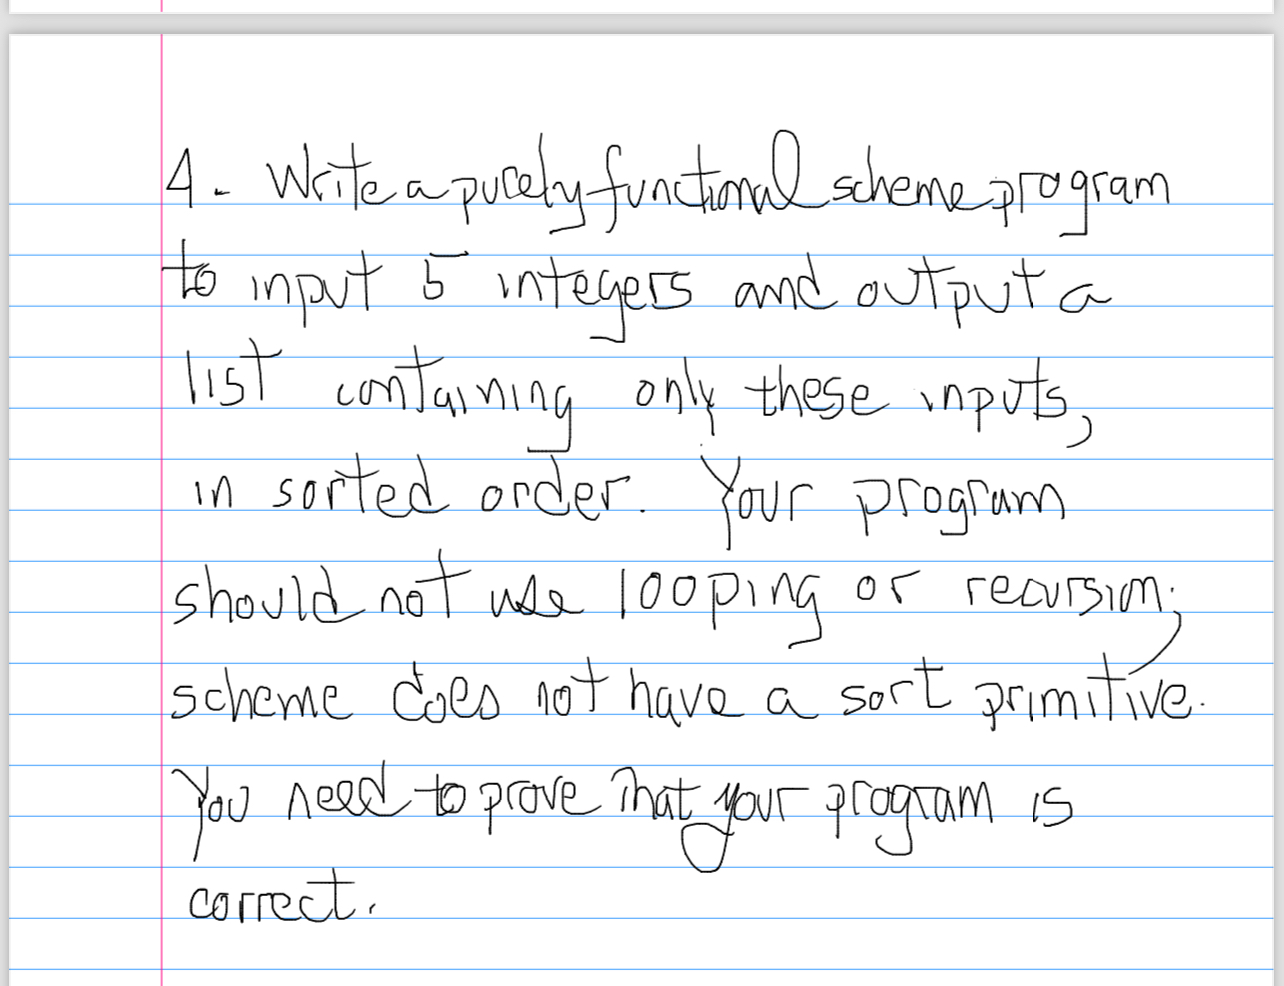 4. Write a purely functional scheme program
to input 5 integers and output a
list containing only these inputs,
in sorted order. Your program
should not use looping or recursion;
scheme does not have a sort primitive.
You need to prove that your program is
correct.